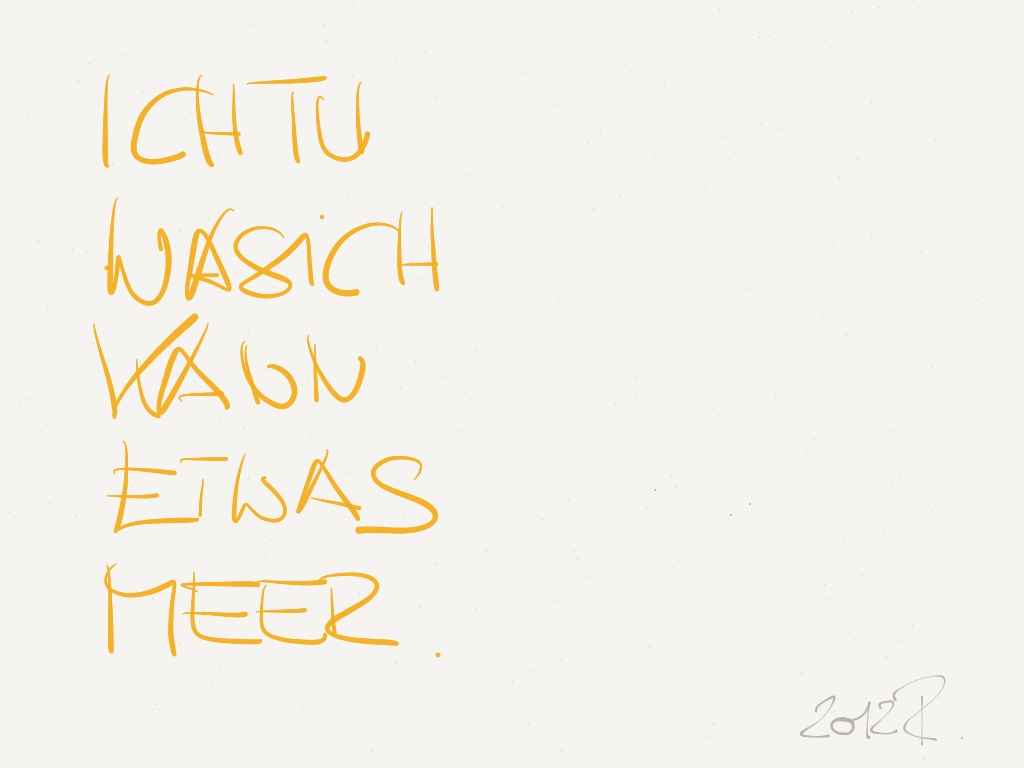 ICH TU
WAS ICH
KANN
ETWAS
MEER.
2012 R.